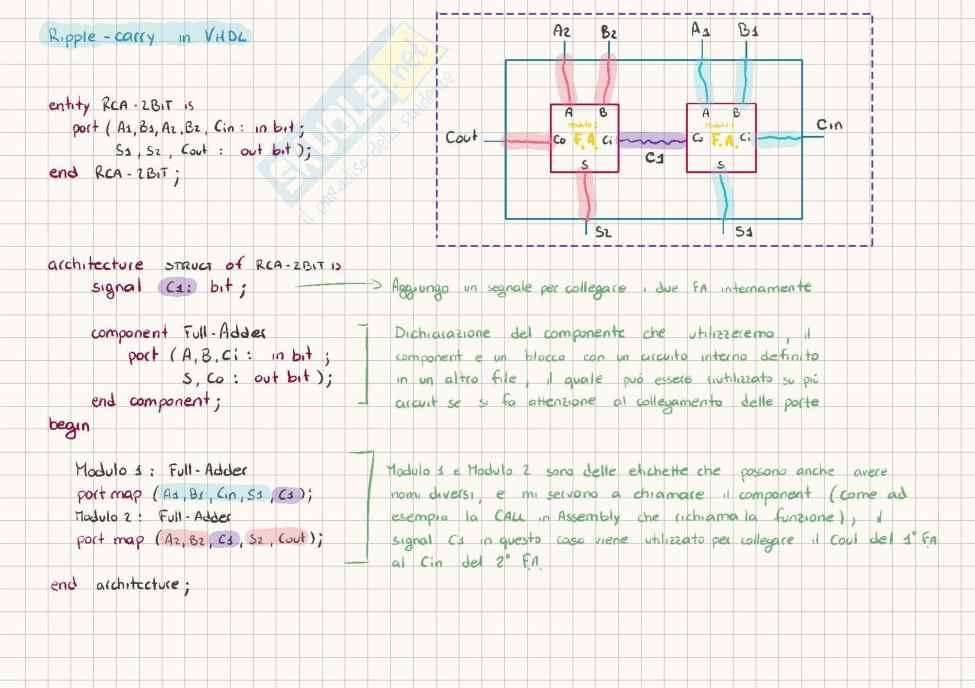 Ripple-carry in VHDL
entity RCA-2BIT is
port (A1,B1,A2,B2, Cin: in bit;
S1, S2, Cout: out bit);
end RCA-2BIT;
A2 B2 A1 B1
A B A B
Modulo 2 Modulo 1
Cout Co F.A. Ci Co F.A. Ci Cin
C1
S S
S2 S1
architecture STRUCT of RCA-2BIT is
signal C1: bit;
Aggiungo un segnale per collegare i due FA internamente
component Full-Adder
port (A,B,Ci: in bit;
S, Co: out bit);
end component;
Dichiarazione del componente che utilizzeremo, il
component e un blocco con un circuito interno definito
in un altro file, il quale può essere riutilizzato su più
circuit se si fa attenzione al collegamento delle porte
begin
Modulo 1: Full-Adder
port map (A1,B1,Cin,S1,C1);
Modulo 2: Full-Adder
port map (A2,B2,C1,S2,Cout);
Modulo 1 e Modulo 2 sono delle etichette che possono anche avere
nomi diversi, e mi servono a chiamare il component (come ad
esempio la CALL in Assembly che richiama la funzione), il
signal C1 in questo caso viene utilizzato per collegare il Cout del 1° FA
al Cin del 2° F.A.
end architecture;
SKUOLA.net
il paradiso dello studente